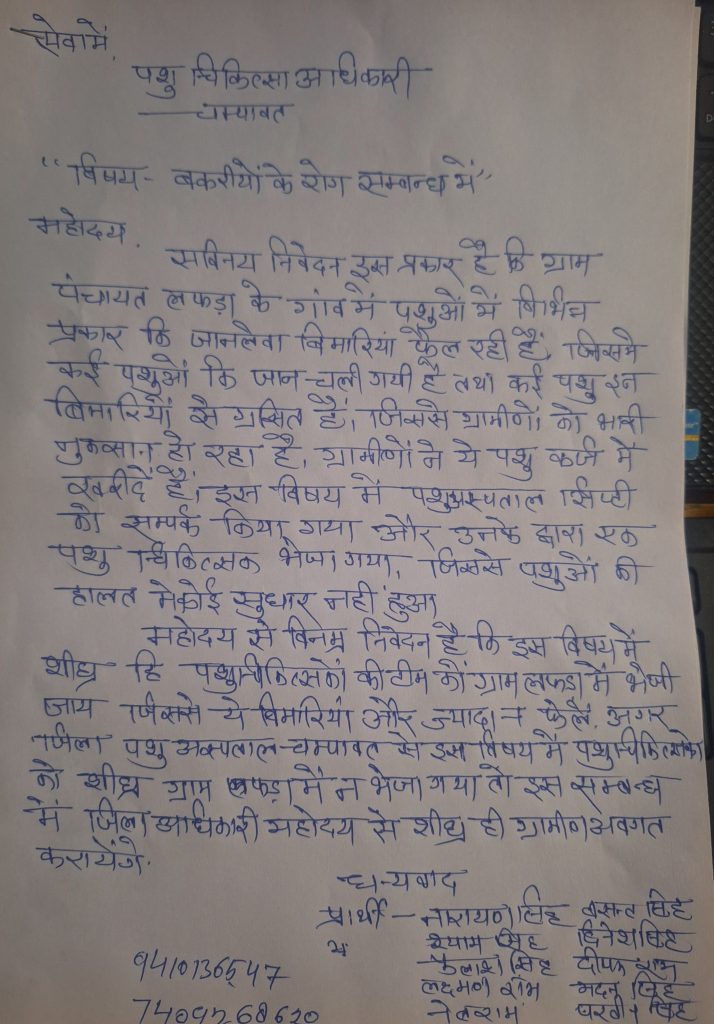 सेवामें,
पशु चिकित्सा अधिकारी
चम्पावत
"विषय - बकरीयों के रोग सम्बन्ध में"
महोदय,
सविनय निवेदन इस प्रकार है कि ग्राम
पंचायत लफड़ा के गांव में पशुओं में विभिन्न
प्रकार कि जानलेवा बिमारियां फैल रही हैं, जिसमे
कई पशुओं कि जान चली गयी है तथा कई पशु इन
बिमारियों से ग्रसित है, जिससे ग्रामीणों को भारी
नुकसान हो रहा है, ग्रामीणों ने ये पशु कर्ज में
खरीदें हैं, इस विषय में पशुअस्पताल सिप्टी
को सम्पर्क किया गया और उनके द्वारा एक
पशु चिकित्सक भेजा गया, जिससे पशुओं की
हालत मेकोई सुधार नहीं हुआ
महोदय से विनम्र निवेदन है कि इस विषय में
शीघ्र हि पशुचिकित्सकों की टीम को ग्राम लफड़ा में भेजी
जाय जिससे ये बिमारियां और ज्यादा न फैलें, अगर
जिला पशु अस्पताल चम्पावत से इस विषय में पशुचिकित्सकों
को शीघ्र ग्राम लफड़ा में न भेजा गया तो इस सम्बन्ध
में जिला अधिकारी महोदय से शीघ्र ही ग्रामीण अवगत
करायेंगे.
धन्यवाद
प्रार्थी - नारायण सिंह बसन्त सिंह
श्याम सिंह दिनेश सिंह
कैलाश सिंह दीपक राम
लक्ष्मण राम मदन सिंह
सिंह
9410136547
7409268620